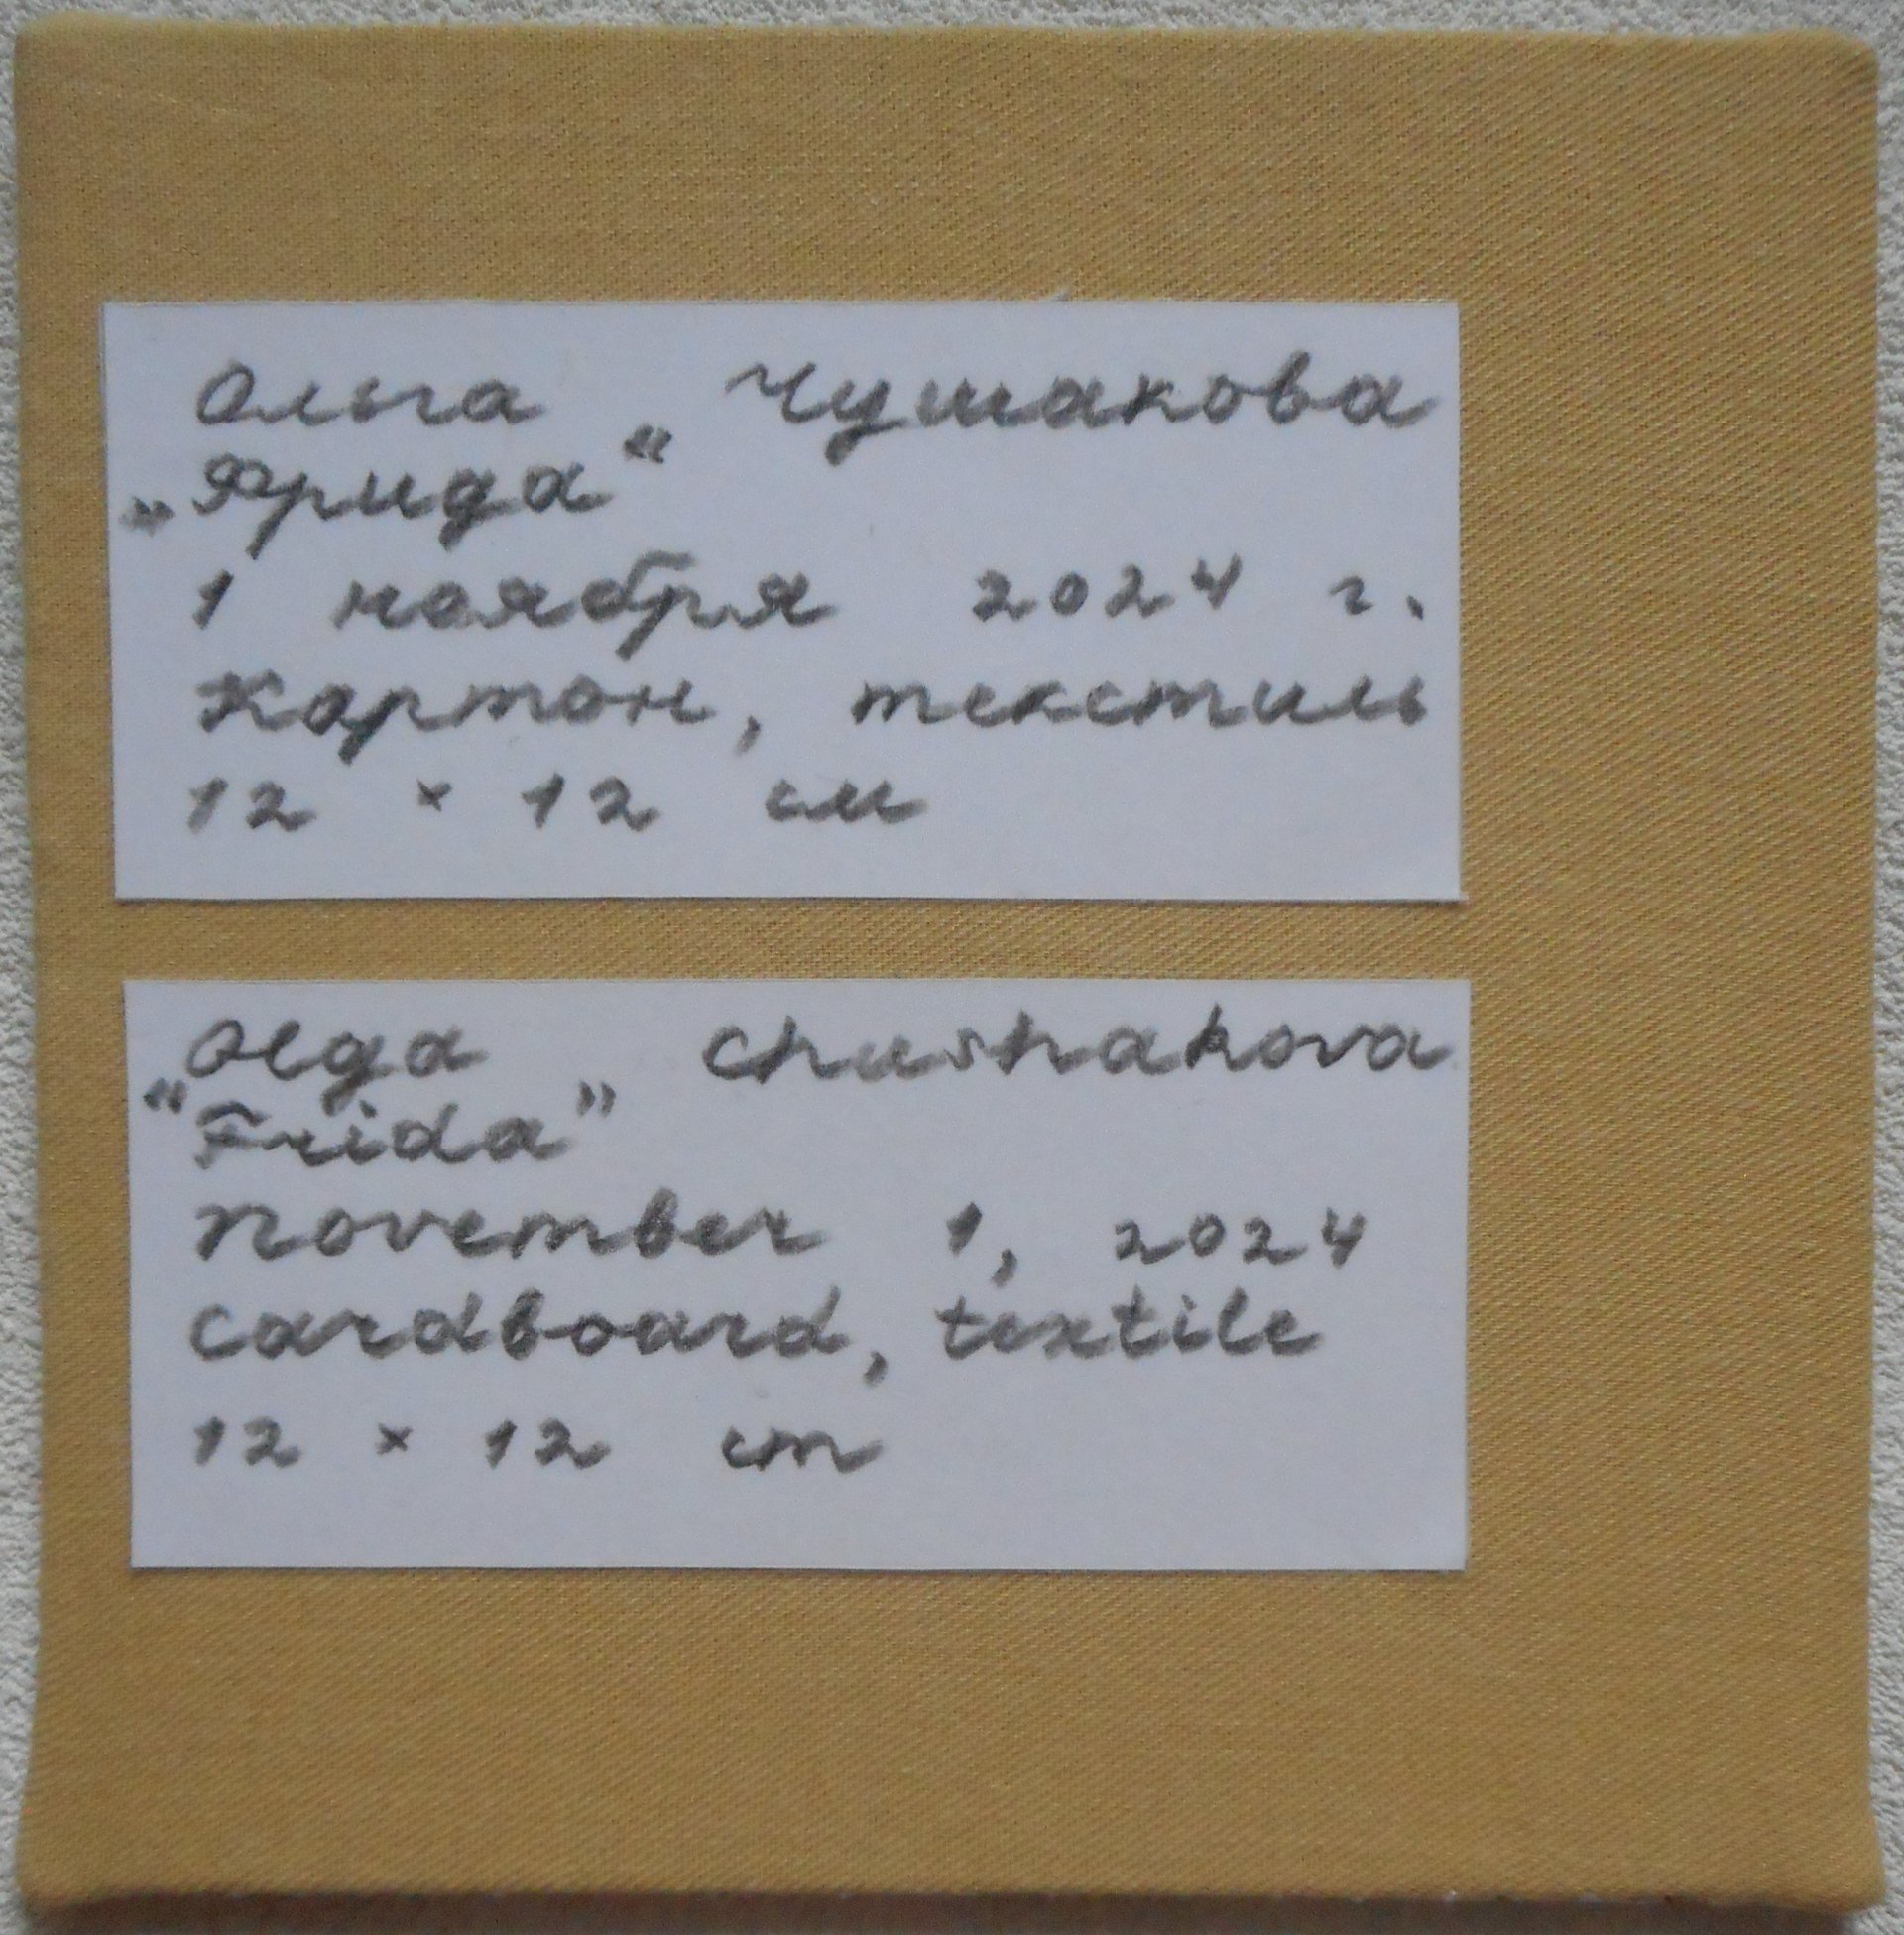 Ольга Чушакова
„Фрида“
1 ноября 2024 г.
Картон, текстиль
12 × 12 см
Olga Chushakova
“Frida”
November 1, 2024
Cardboard, textile
12 × 12 cm